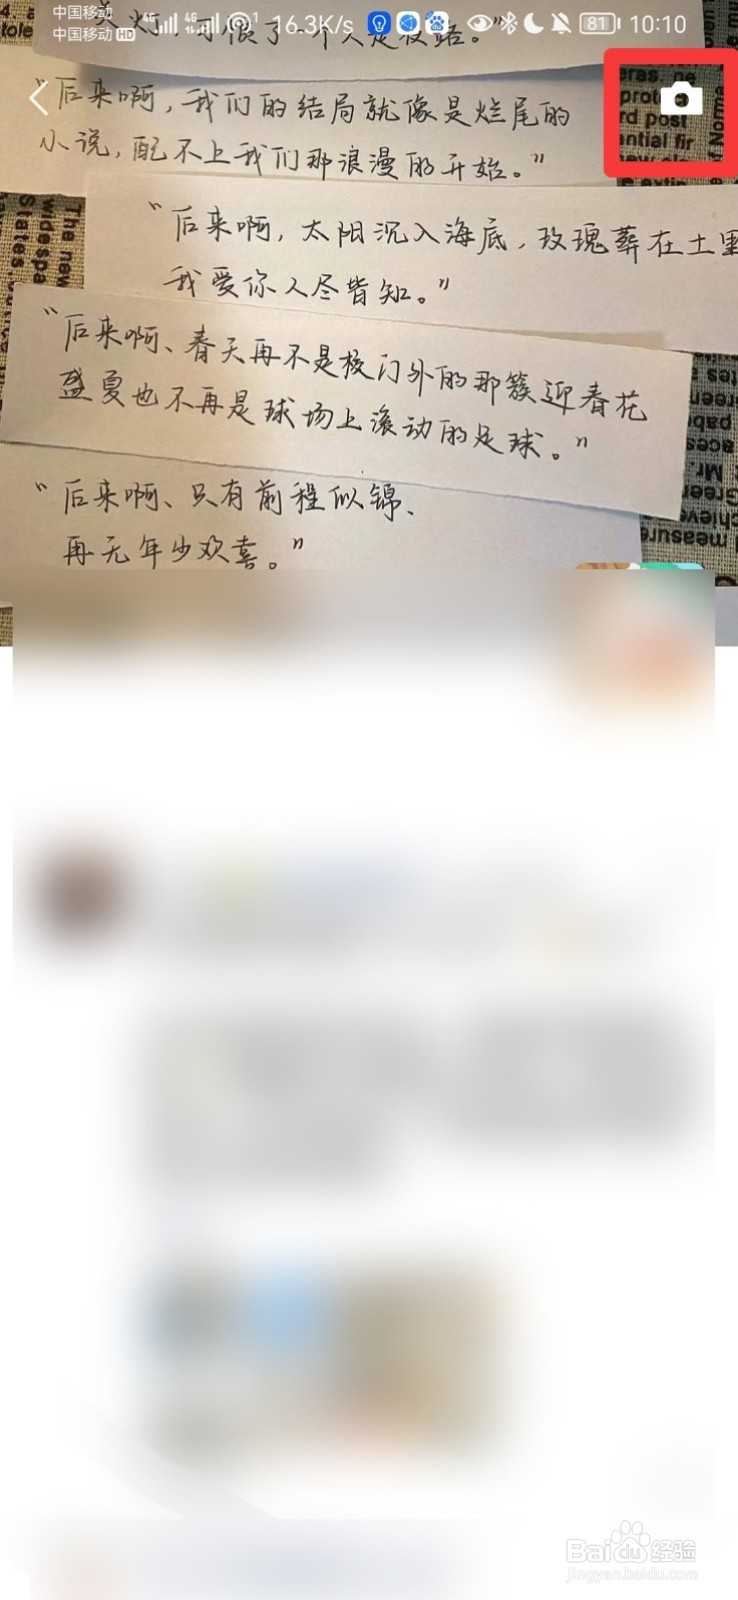 中国移动 4G 4G 16.3K/s 81 10:10
中国移动 HD
一个人是夜路。”
“后来啊，我们的结局就像是烂尾的
小说，配不上我们那浪漫的开始。”
“后来啊，太阳沉入海底，玫瑰葬在土里
我爱你人尽皆知。”
“后来啊、春天再不是校门外的那簇迎春花
盛夏也不再是球场上滚动的足球。”
“后来啊、只有前程似锦、
再无年少欢喜。”
eras.
rd post
ential fir
The new
widespa
States.
Baidu经验
jingyan.baidu.com